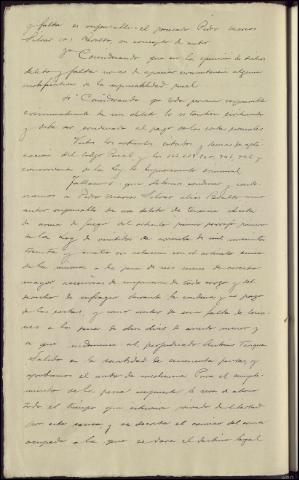 y falta es responsable el procesado Pedro Marcos
Silvar (a) Pedrolas, en concepto de autor
3º Considerando que en la ejecución de dichos
delito y falta no es de apreciar circunstancia alguna
modificativa de la responsabilidad penal
4º Considerando que toda persona responsable
criminalmente de un delito lo es tambien civilmente
y debe ser condenada al pago de las costas procesales
Vistos los artículos citados y demas de apli-
cacion del Código Penal y los 142
concordantes de la Ley de Enjuiciamiento criminal
Fallamos: que debemos condenar y conde-
namos a Pedro Marcos Silvar alias como
autor responsable de un delito de tenencia ilicita
de arma de fuego del articulo primero parrafo primero
de la Ley de veintidos de noviembre de mil novecientos
treinta y cuatro en relacion con el articulo
de la misma a la pena de seis meses de arresto
mayor, accesorias de suspension de todo cargo y del
derecho de sufragio durante la condena y al pago
de las costas, y como autor de una falta de lesio-
nes a la pena de diez dias de arresto menor y
a que indemnice al perjudicado
Salido en la cantidad de cincuenta pesetas, y
aprobamos el auto de insolvencia. Para el cumpli-
miento de la pena impuesta le sera de abono
todo el tiempo que estuviera privado de libertad
por esta causa y se decreta el comiso del arma
ocupada a la que se dará el destino legal